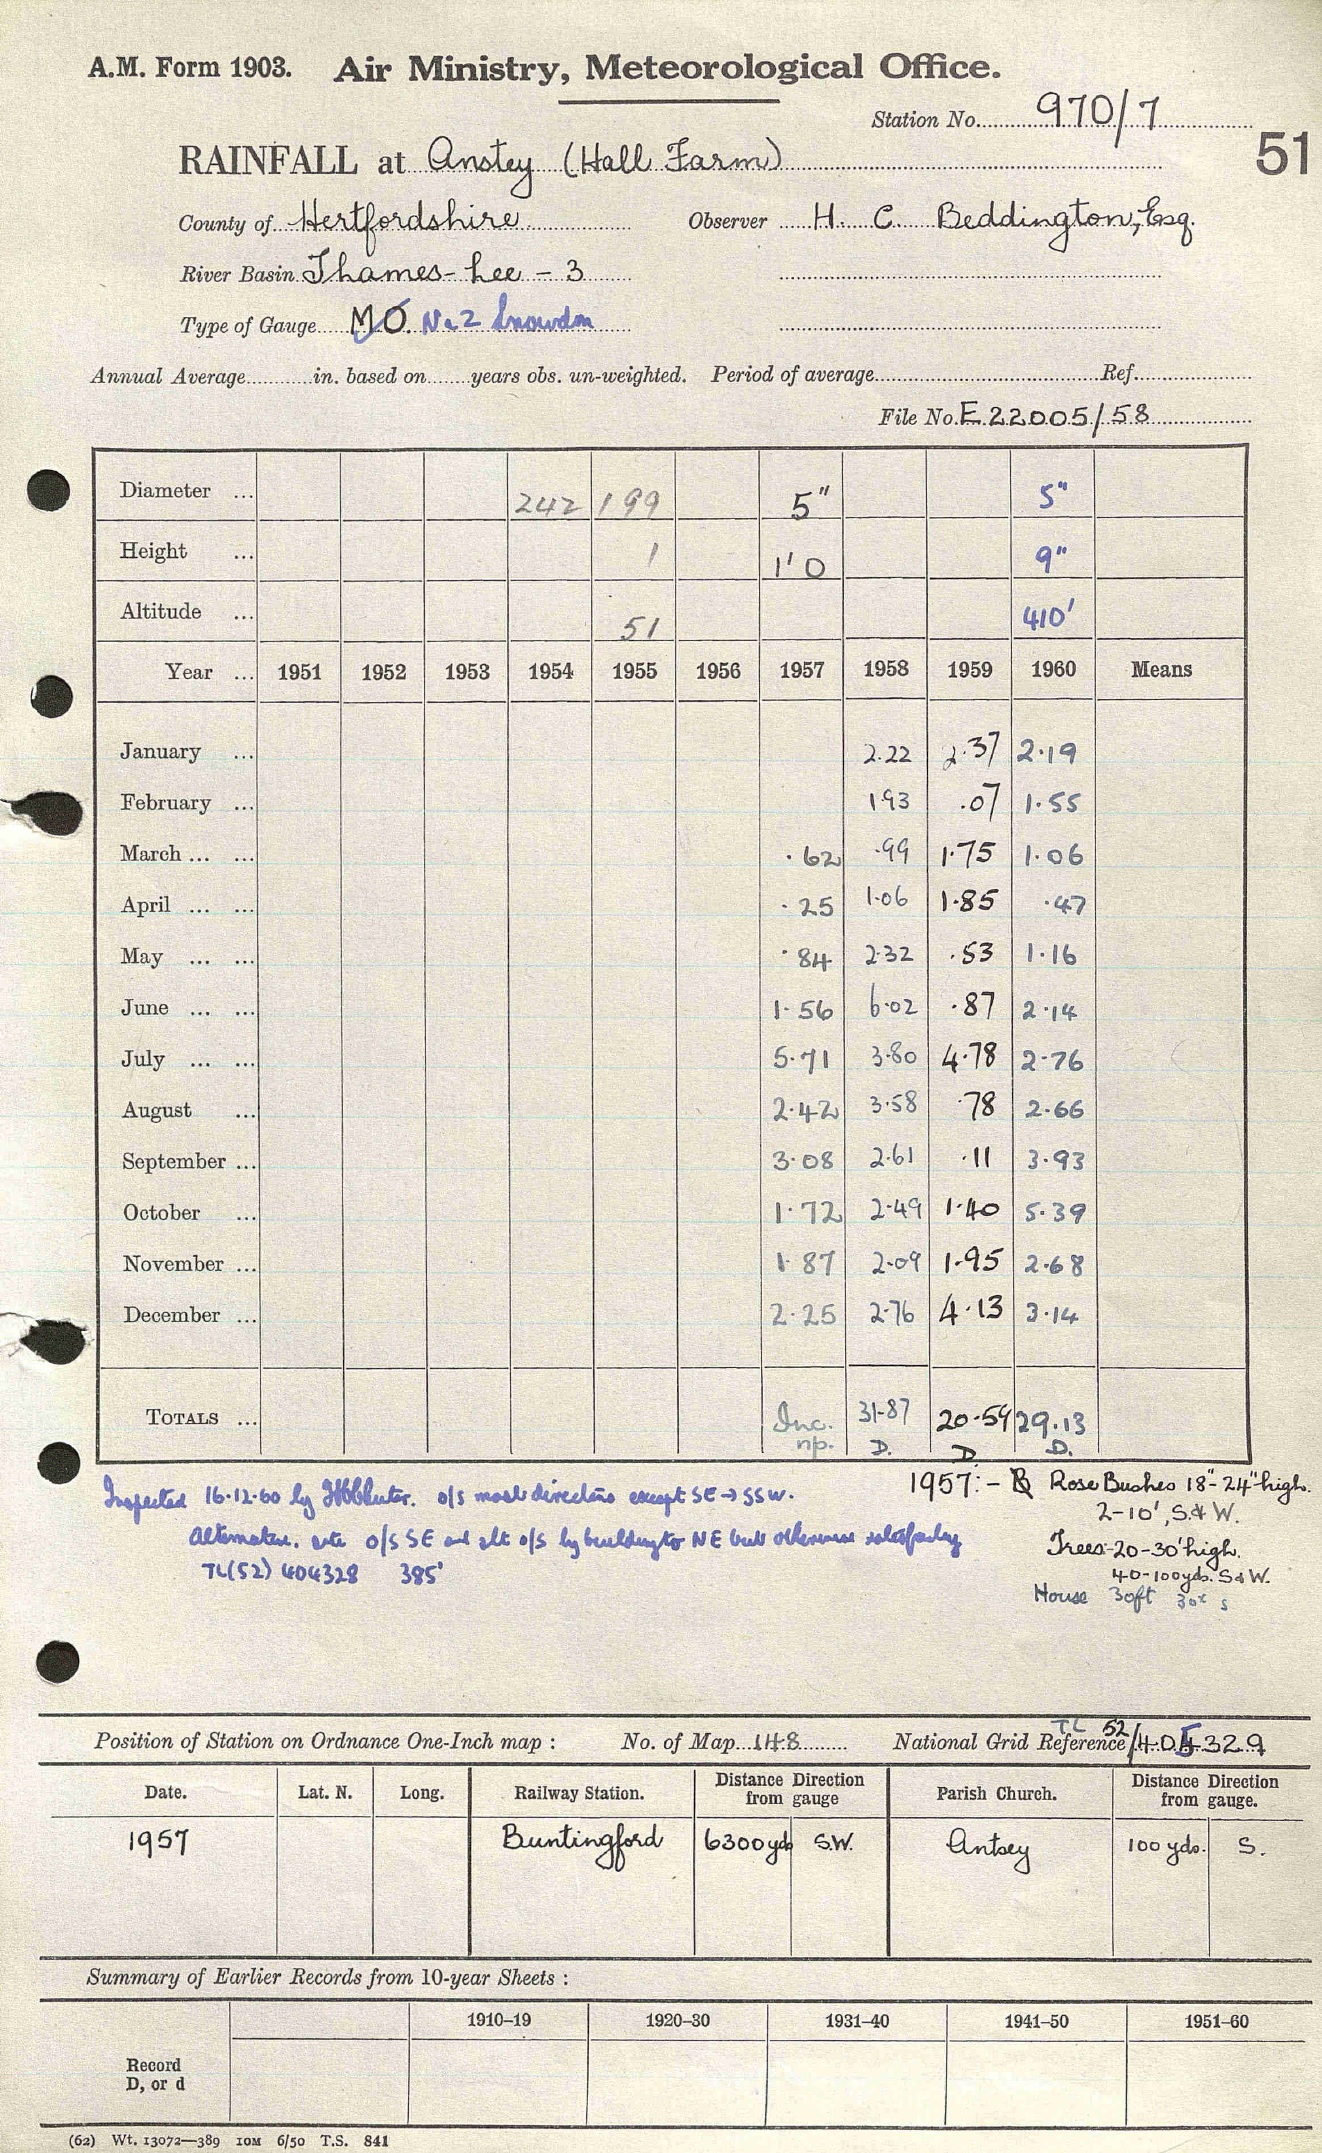 A.M. Form 1903. Air Ministry, Meteorological Office.
Station No. 970/7
51
RAINFALL at Anstey (Hall Farm)
County of Hertfordshire Observer H. C. Beddington, Esq.
River Basin Thames-Lee-3
Type of Gauge MO No 2 Snowdon
Annual Average in. based on years obs. un-weighted. Period of average Ref.
File No. E.22005/58
Diameter ... 242 199 5" 5"
Height ... 1 1'0 9"
Altitude ... 51 410'
Year ... 1951 1952 1953 1954 1955 1956 1957 1958 1959 1960 Means
January ... 2.22 2.37 2.19
February ... 1.93 .07 1.55
March ... ... .62 .99 1.75 1.06
April ... ... .25 1.06 1.85 .47
May ... ... .84 2.32 .53 1.16
June ... ... 1.56 6.02 .87 2.14
July ... ... 5.71 3.80 4.78 2.76
August ... 2.42 3.58 .78 2.66
September ... 3.08 2.61 .11 3.93
October ... 1.72 2.49 1.40 5.39
November ... 1.87 2.09 1.95 2.68
December ... 2.25 2.76 4.13 3.14
TOTALS ... Inc. 31.87 20.59 29.13
np. D. D D.
Inspected 16.12.60 by o/s most directions except SE → SSW.
Alternative site o/s SE and slt o/s by building to NE but otherwise satisfactory
TL(52) 404328 385'
1957:- Rose Bushes 18"-24" high.
2-10', S.& W.
Trees-20-30' high.
40-100yds. S & W.
House 30ft 30x S
Position of Station on Ordnance One-Inch map : No. of Map 148 National Grid Reference TL 52/405329
Date. Lat. N. Long. Railway Station. Distance Direction from gauge Parish Church. Distance Direction from gauge.
1957 Buntingford 6300 yds S.W. Antsey 100 yds. S.
Summary of Earlier Records from 10-year Sheets :
1910–19 1920–30 1931–40 1941–50 1951–60
Record
D, or d
(62) Wt. 13072—389 10M 6/50 T.S. 841